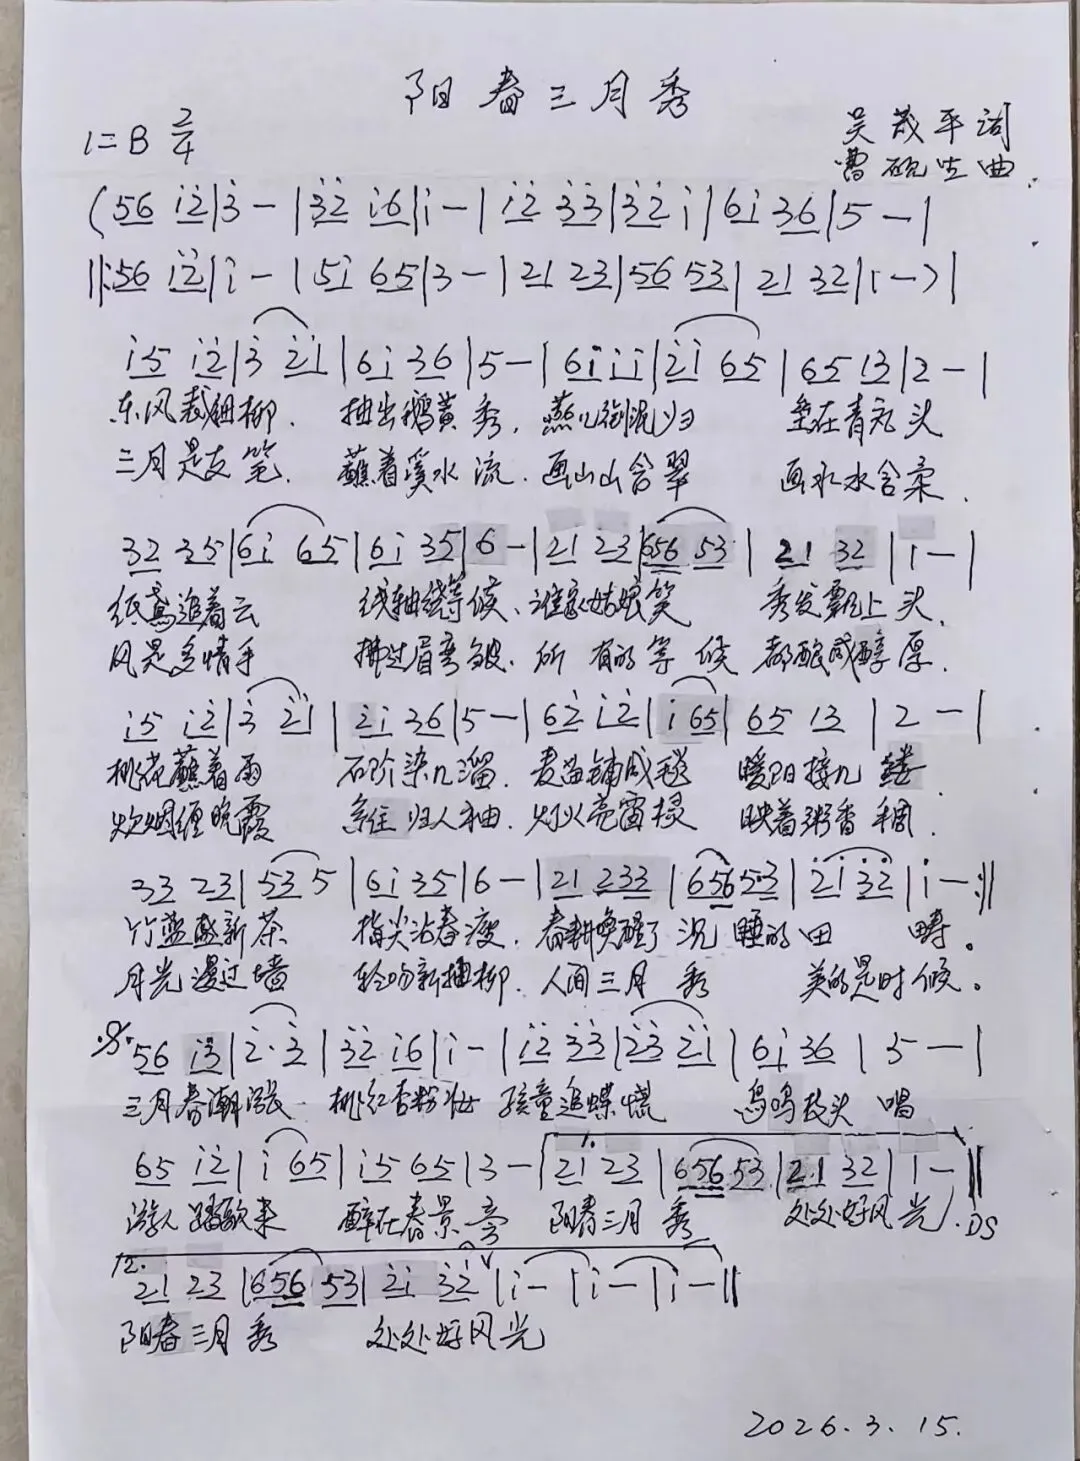 阳春三月秀
1=B 2/4
吴茂平词
曹砚生曲
(56 i̇2̇|3̇ - |3̇2̇ i̇6|i̇ - | i̇2̇ 3̇3̇|3̇2̇ i̇|6i̇ 36|5 - |
||:56 i̇2̇|i̇ - | 5i̇ 65|3 - | 21 23|56 53| 21 32|1 - )|
i̇5 i̇2̇|3̇ 2̇i̇|6i̇ 36|5 - | 6i̇ i̇i̇|2̇i̇ 65 | 65 13|2 - |
东风裁细柳. 抽出鹅黄秀. 燕儿衔泥归 垒在青瓦头
三月是支笔. 蘸着溪水流. 画山山含翠 画水水含柔.
32 35|6i̇ 65|6i̇ 35|6 - |21 23|656 53| 21 32 |1 - |
纸鸢追着云 线轴绕等候、谁家姑娘笑 秀发飘上头.
风是多情手 拂过眉弯皱. 所有的等候 都酿成醇厚.
i̇5 i̇2̇|3̇ 2̇i̇ | 2̇i̇ 36|5 - |62̇ i̇2̇|i̇ 65| 65 13 | 2 - |
桃花蘸着雨 石阶染几溜. 麦苗铺成毯 暖阳搂几
炊烟缠晚霞 牵住归人袖. 灯火亮窗棂 映着粥香稠.
33 23| 53 5 |6i̇ 35|6 - |21 233 |656 53| 2̇i̇ 3̇2̇ |i̇ - :||
竹篮盛新茶 指尖沾春瘦. 春耕唤醒了沉睡的田畴。
月光漫过墙 轻吻新抽柳. 人间三月秀 美的是时候。
56 i̇3̇|2̇· 3̇|3̇2̇ i̇6|i̇ - |i̇2̇ 3̇3̇|2̇3̇ 2̇i̇ | 6i̇ 36 | 5 - |
三月春潮涨 桃红杏粉妆 孩童追蝶慌 鸟鸣枝头唱
65 i̇2̇| i̇ 65|i̇5 65|3 - |1. 21 23 |656 53|2·1 32|1 - ||
游人踏歌来 醉在春景旁 阳春三月秀 处处好风光. DS
2. 21 23 |656 53| 2̇i̇ 3̇2̇ |i̇ - |i̇ - |i̇ - ||
阳春三月秀 处处好风光
2026.3.15.